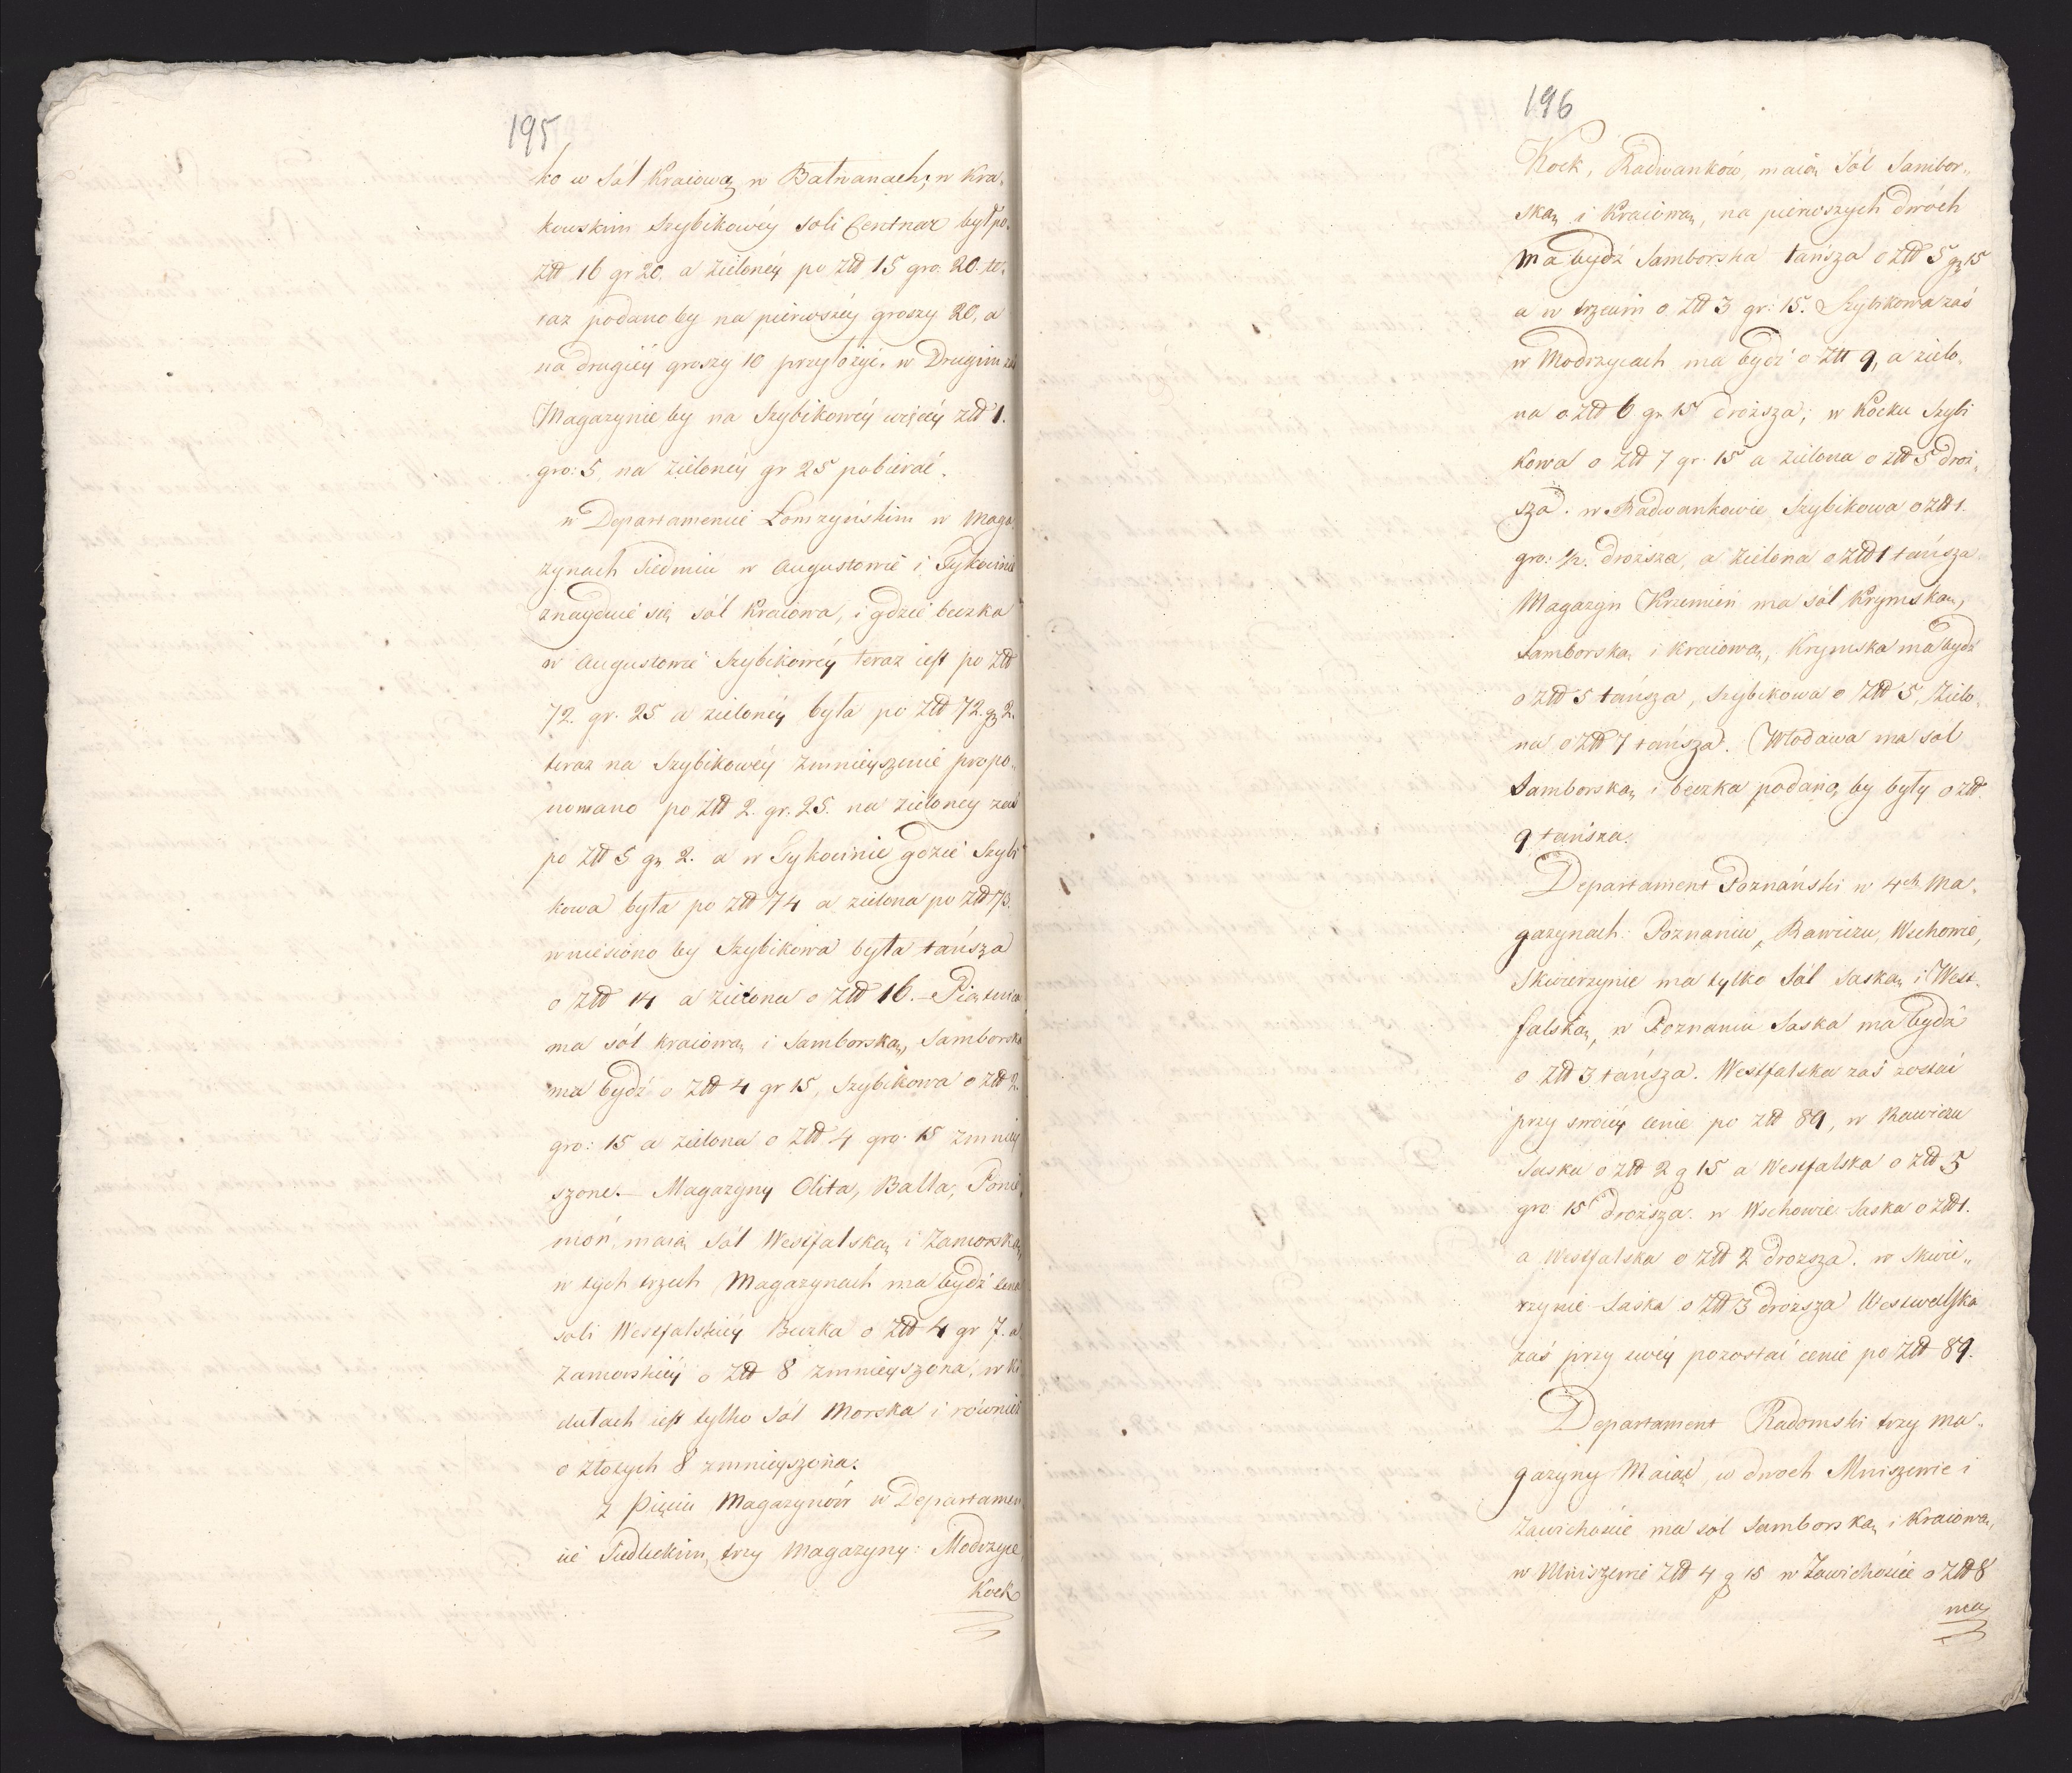 195
ko w Sól Kraiową w Bałwanach; w Kra„
kowskim Szybikowéy soli Centnar był po
złł 16 gr 20, a zielonéy po złł 15 gro: 20. te„
raz podano by na pierwszéy groszy 20, a
na drugiéy groszy 10 przyłożyć. w Drugim zaś
Magazynie by na Szybikowéy więcéy złł 1.
gro: 5, na zielonéy gr 25 pobierać.
w Departamencie Łomżyńskim w Maga
zynach Siedmiu w Augustowie i Tykocinie
znayduie się sól Kraiowa, i gdzie beczka
w Augustowie Szybikowéy teraz iest po złł
72. gr. 25 a zielonéy była po złł 72. gr 2.
teraz na Szybikowéy zmnieyszenie propo„
nowano po złł 2. gr. 25. na zieloney zaś
po złł 5 gr 2. a w Tykocinie gdzie Szybi
kowa była po złł 74 a zielona po złł 73.
wniesiono by Szybikowa była tańsza
o złł 14 a zielona o złł 16. – Piątnica
ma sól kraiową i Samborską, Samborska
ma bydź o złł 4 gr 15, Szybikowa o złł 2.
gro: 15 a zielona o złł 4 gro. 15 zmniey
szone. – Magazyny Olita, Balla, Ponie„
moń maią Sól Westfalską i Zamorską,
w tych trzech Magazynach ma bydź cena
soli Westfalskiéy Beczka o złł 4 gr 7. a
Zamorskiéy o złł 8 zmnieyszona, w Ki
dułach iest tylko Sól Morska i również
o złotych 8 zmnieyszona.
z Pięciu Magazynów w Departamen
cie Siedleckim, trzy Magazyny: Modrzyce,
Kock
196
Kock, Radwanków, maią Sól Sambor„
ską i Kraiową, na pierwszych dwóch
ma bydź Samborska tańsza o złł 5 gr 15
a w trzecim o złł 3 gr: 15. Szybikowa zaś
w Modrzycach ma bydź o złł 9, a zielo„
na o złł 6 gr 15 droższa; w Kocku Szybi
kowa o złł 7 gr. 15 a zielona o złł 5 droż„
sza. w Radwankowie Szybikowa o złł 1.
gro: ½. droższa, a zielona o złł 1 tańsza
Magazyn Krzemień ma sól Krymską,
Samborską i kraiową, Krymska ma bydź
o złł 5 tańsza, Szybikowa o złł 5, Zielo„
na o złł 7 tańsza. Włodawa ma sól
Samborską i beczka podano, by były o złł.
9 tańsza.
Departament Poznański w 4ch Ma„
gazynach: Poznaniu, Rawiczu, Wschowie,
Skwierzynie ma tylko Sól Saską i West„
falską, w Poznaniu Saska ma bydź
o złł 3 tańsza. Westfalska zaś zostać
przy swoiéy cenie po złł 89, w Rawiczu
Saska o złł 2 g 15 a Westfalska o złł 5
gro 15 droższa. w Wschowie Saska o złł 1.
a Westfalska o złł 2 droższa. w Skwie„
rzynie Saska o złł 3 droższa Westwalska
zaś przy swéy pozostać cenie po złł 89.
Departament Radomski trzy ma„
gazyny Maiąc, w dwóch Mniszewie i
Zawichoście ma sól Samborską i Kraiową,
w Mniszewie złł 4 g 15 w Zawichoście o złł 8
ma